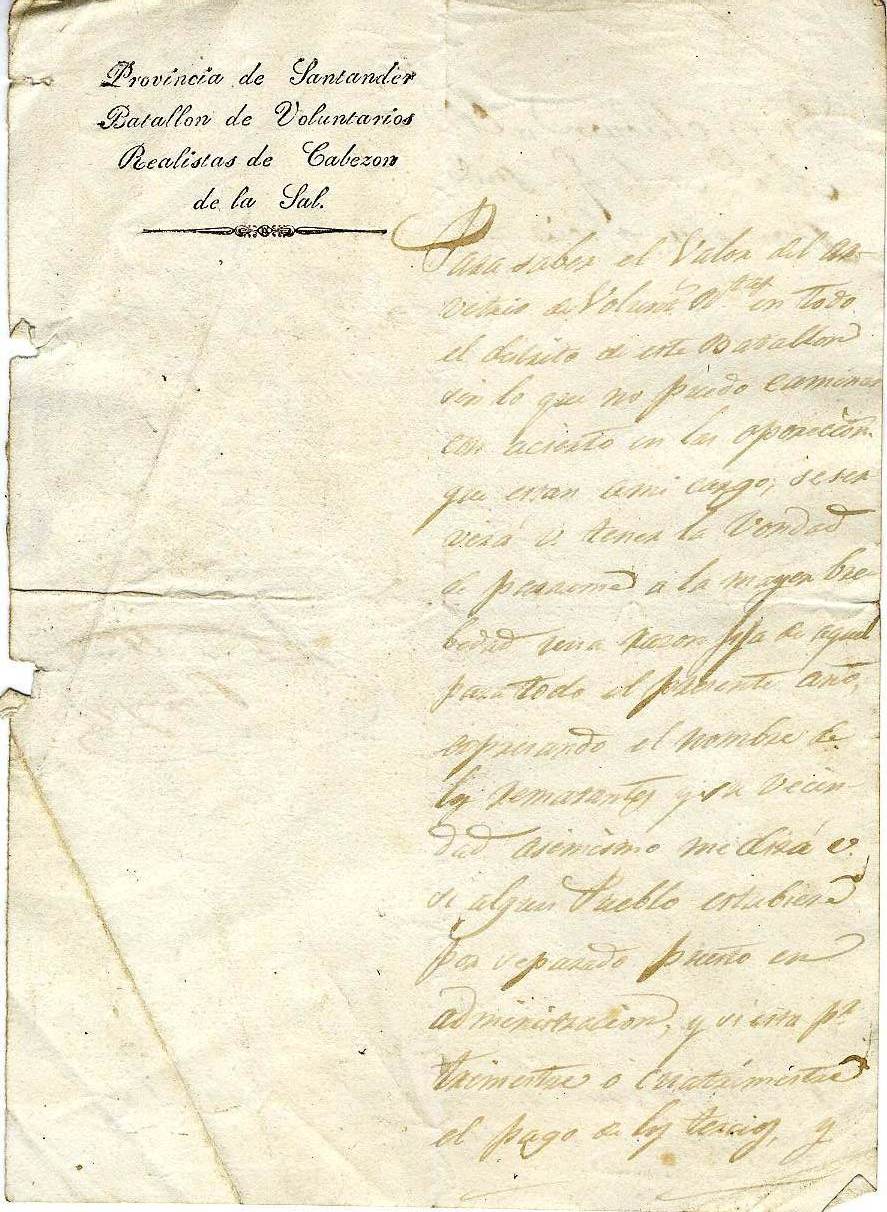 Provincia de Santander
Batallon de Voluntarios
Realistas de Cabezon
de la Sal.
Para saber el Valor del ar-
vitrio de Volunᵃ Rˡᵗᵃˢ en todo
el distrito de este Batallon
sin lo que no puedo caminar
con acierto en las
que estan ami cargo, se ser
virá V. tener la Vondad
de pasarme a la mayor bre
bedad una razon fija de aquel
para todo el presente año,
expresando el nombre de
los rematantes y su vecin-
dad asimismo me dirá V.
si algun Pueblo estubiere
por separado puesto en
administracion, y si esta pʳ
trimestre o cuatrimestre
el pago de los tercios, y